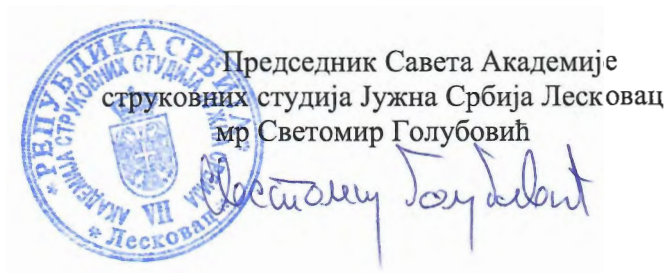 Председник Савета Академије
струковних студија Јужна Србија Лесковац
мр Светомир Голубовић
РЕПУБЛИКА СРБИЈА
АКАДЕМИЈА СТРУКОВНИХ СТУДИЈА ЈУЖНА СРБИЈА
VII
* Лесковац *